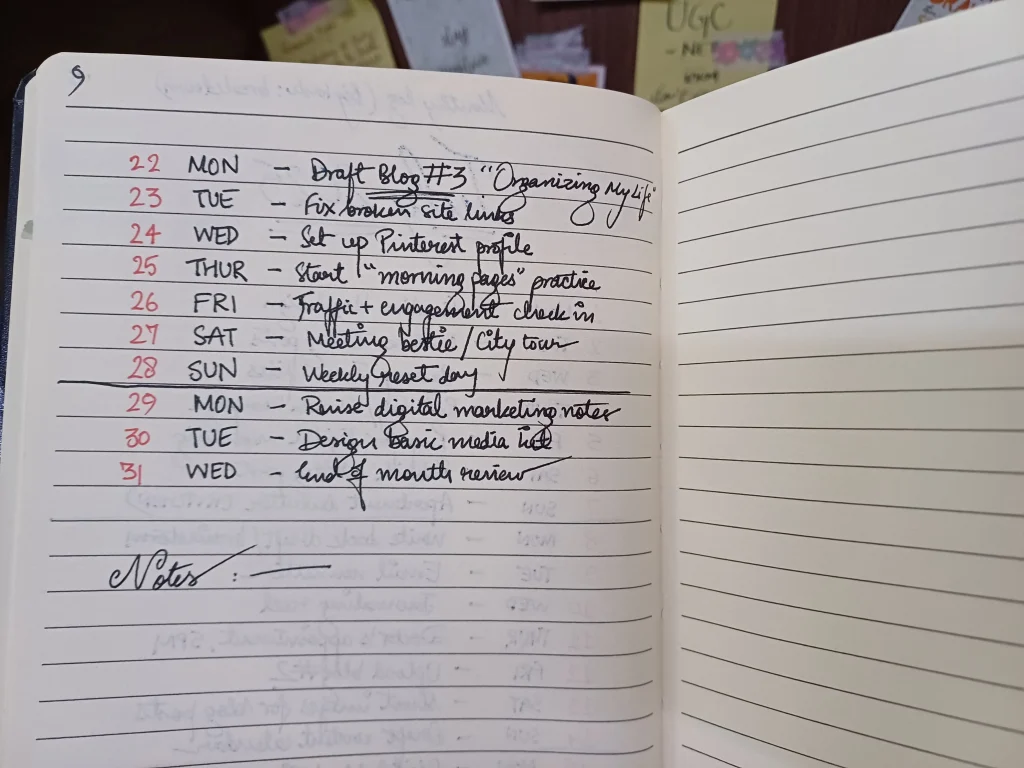 9
22 MON - Draft Blog #3 "Organizing My Life"
23 TUE - Fix broken site links
24 WED - Set up Pinterest profile
25 THUR - Start "morning pages" practice
26 FRI - Traffic + engagement check in
27 SAT - Meeting bestie/City tour
28 SUN - Weekly reset day
29 MON - Revise digital marketing notes
30 TUE - Design basic media kit
31 WED - End of month review
Notes :
UGC